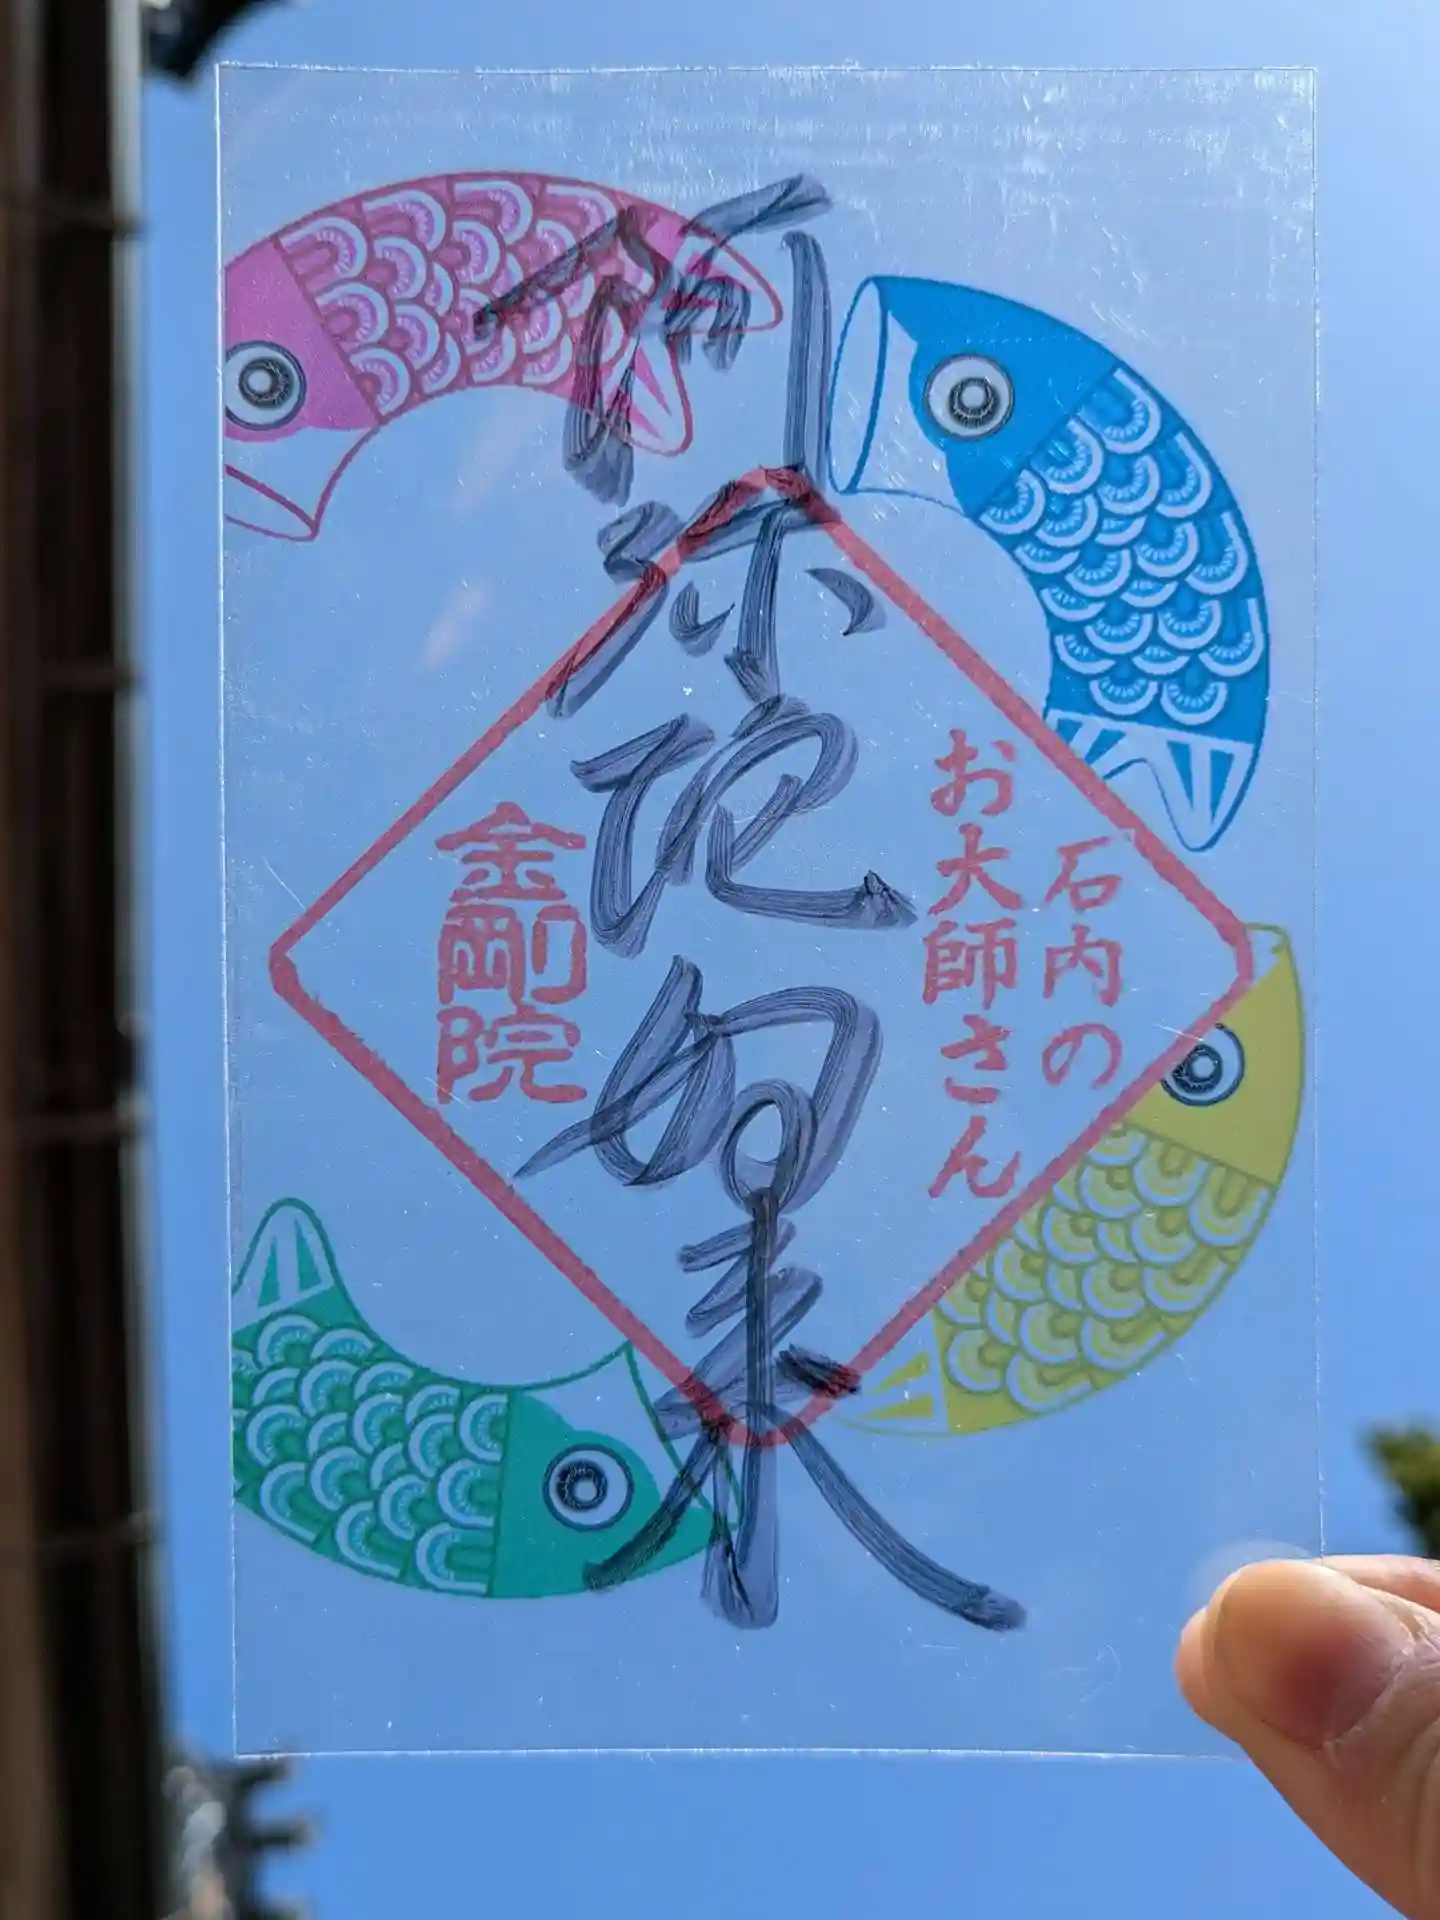 石内の
お大師さん
阿弥陀如来
金剛院